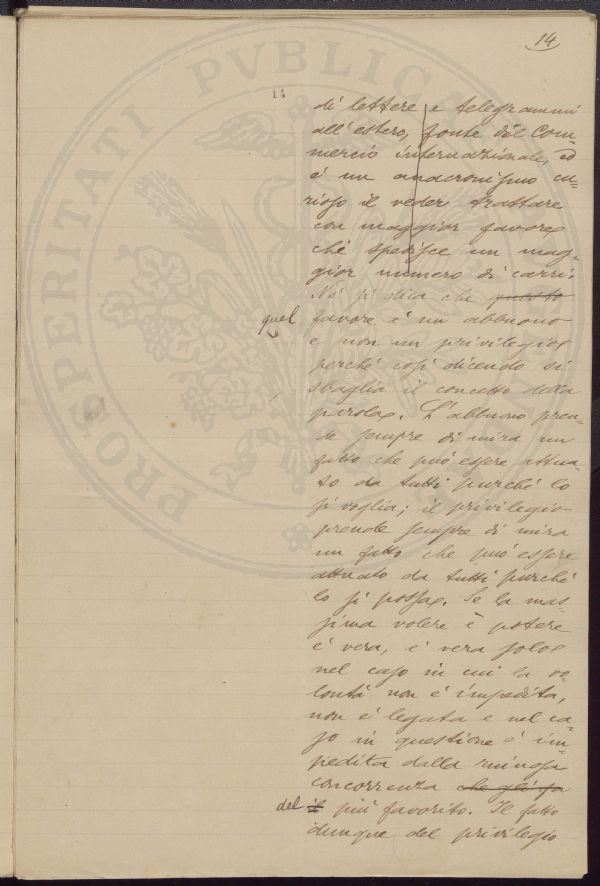 14
14
PROSPERITATI PVBLICAE
di lettere e telegrammi
all'estero, fonte del Com-
mercio internazionale, ed
è un anacronismo cu-
rioso il veder trattare
con maggior favore
chi spedisce un mag-
gior numero di carri.
Né si dica che questo
quel favore è un abbuono
e non un privilegio
perché così dicendo si
sbaglia il concetto della
parola. L'abbuono pren-
de sempre di mira un
fatto che può essere attua-
to da tutti purché lo
si voglia; il privilegio
prende sempre di mira
un fatto che può essere
attuato da tutti purché
lo si possa. Se la mas-
sima volere è potere
è vera, è vera solo
nel caso in cui la vo-
lontà non è impedita,
non è legata e nel ca-
so in questione è im-
pedita dalla ruinosa
concorrenza che gli fa
del il più favorito. Il fatto
dunque del privilegio